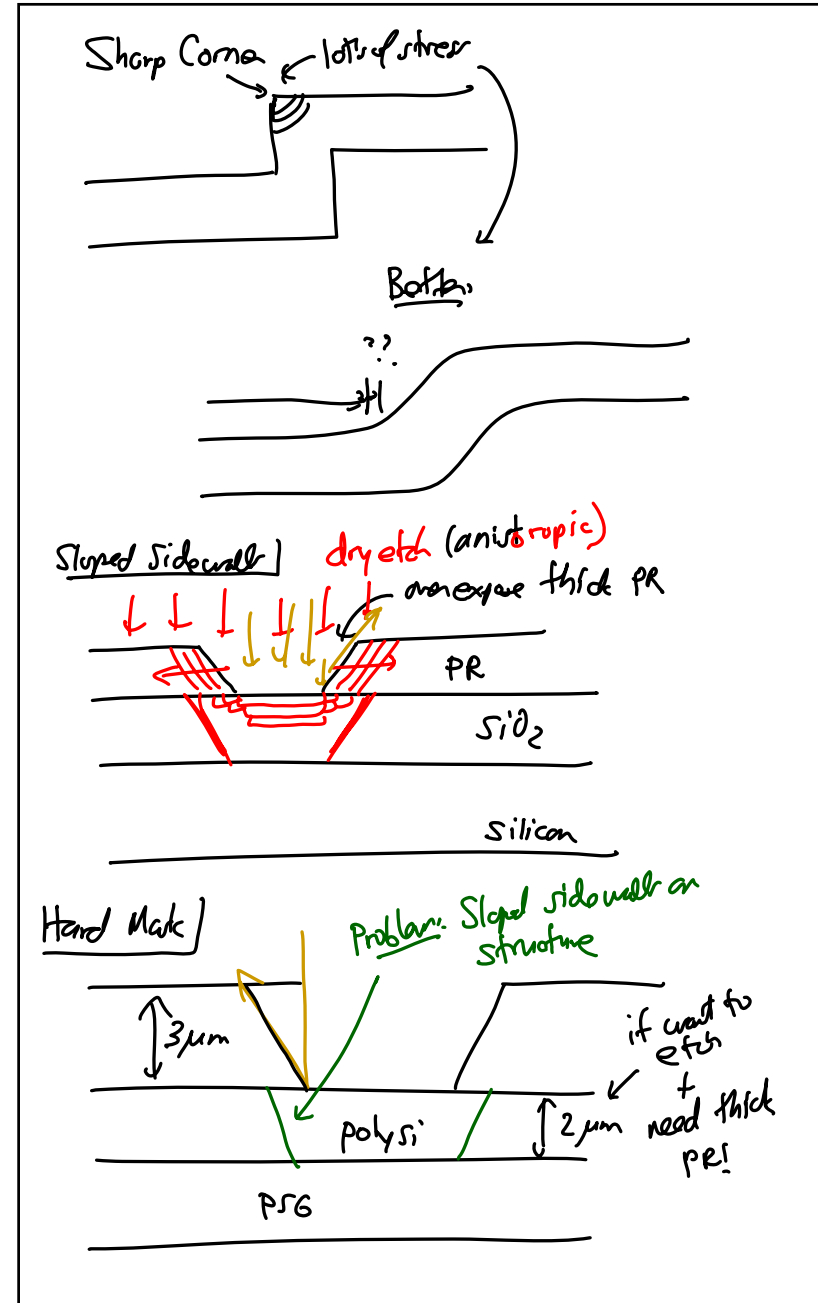 Sharp Corner
lots of stress
Better:
??
Sloped Sidewalls
dry etch (anistropic)
overexpose thick PR
PR
SiO2
silicon
Hard Mask
Problem: Sloped sidewalls on
structure
3μm
if want to
etch
+
need thick
PR!
2 μm
polySi
PSG